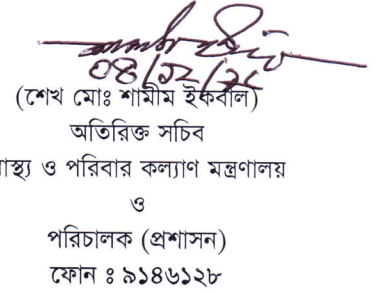 (শেখ মোঃ শামীম ইকবাল)
অতিরিক্ত সচিব
াস্থ্য ও পরিবার কল্যাণ মন্ত্রণালয়
ও
পরিচালক (প্রশাসন)
ফোন ঃ ৯১৪৬১২৮